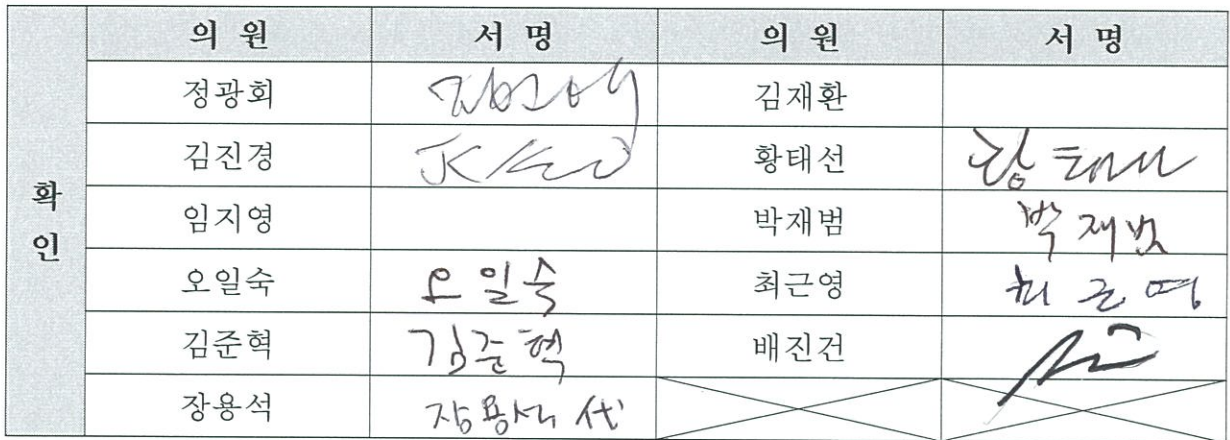 의 원 서 명 의 원 서 명
정광회 김재환
김진경 황태선 황태선
확 임지영 박재범 박재범
인 오일숙 오일숙 최근영 최근영
김준혁 김준혁 배진건
장용석 장용석 代